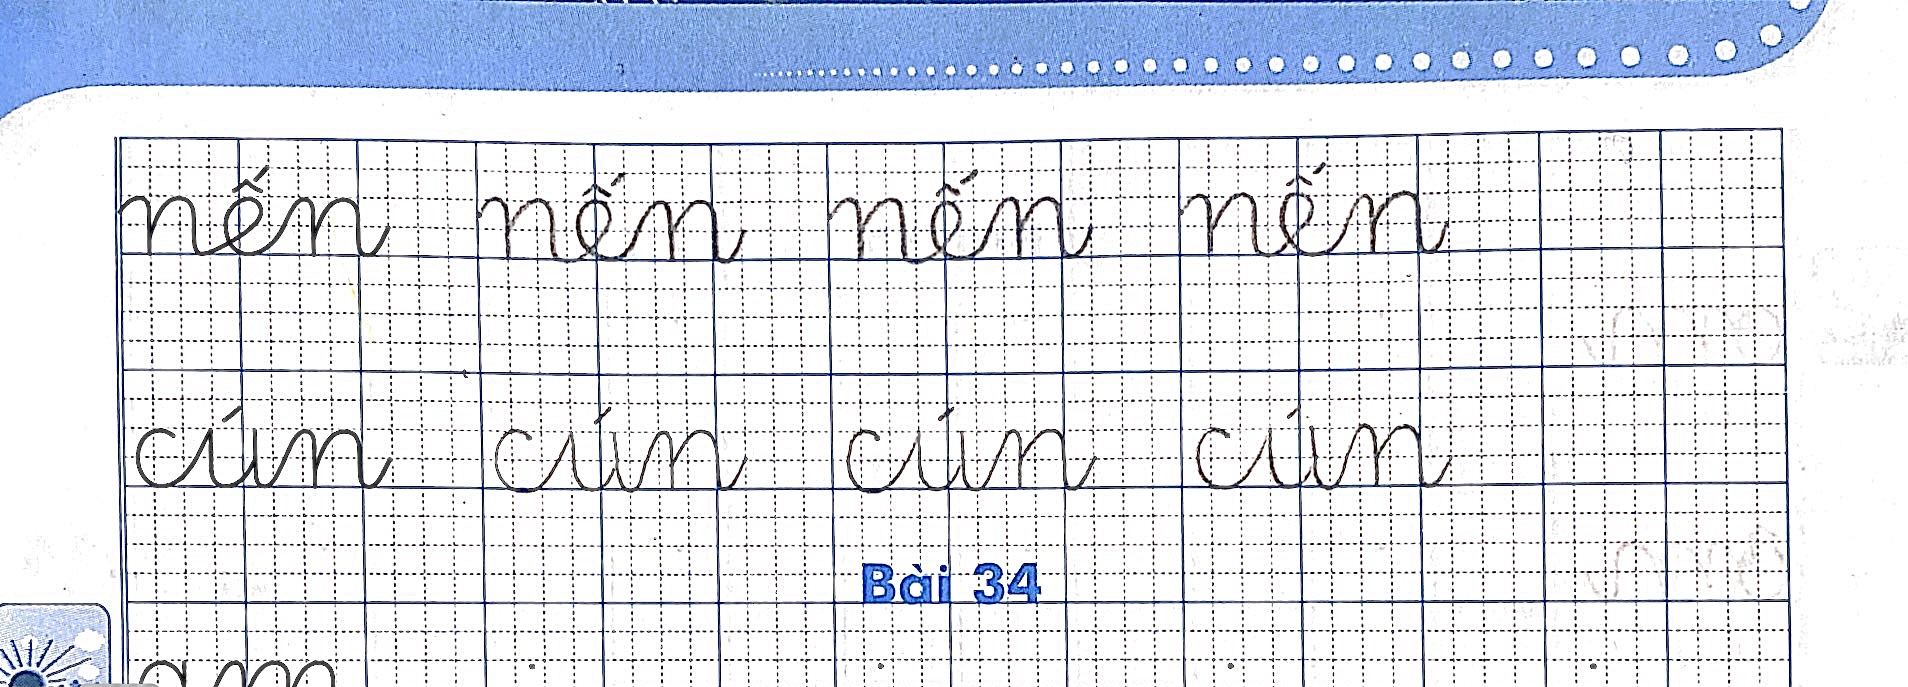 nến nến nến nến
cún cún cún cún
Bài 34
am